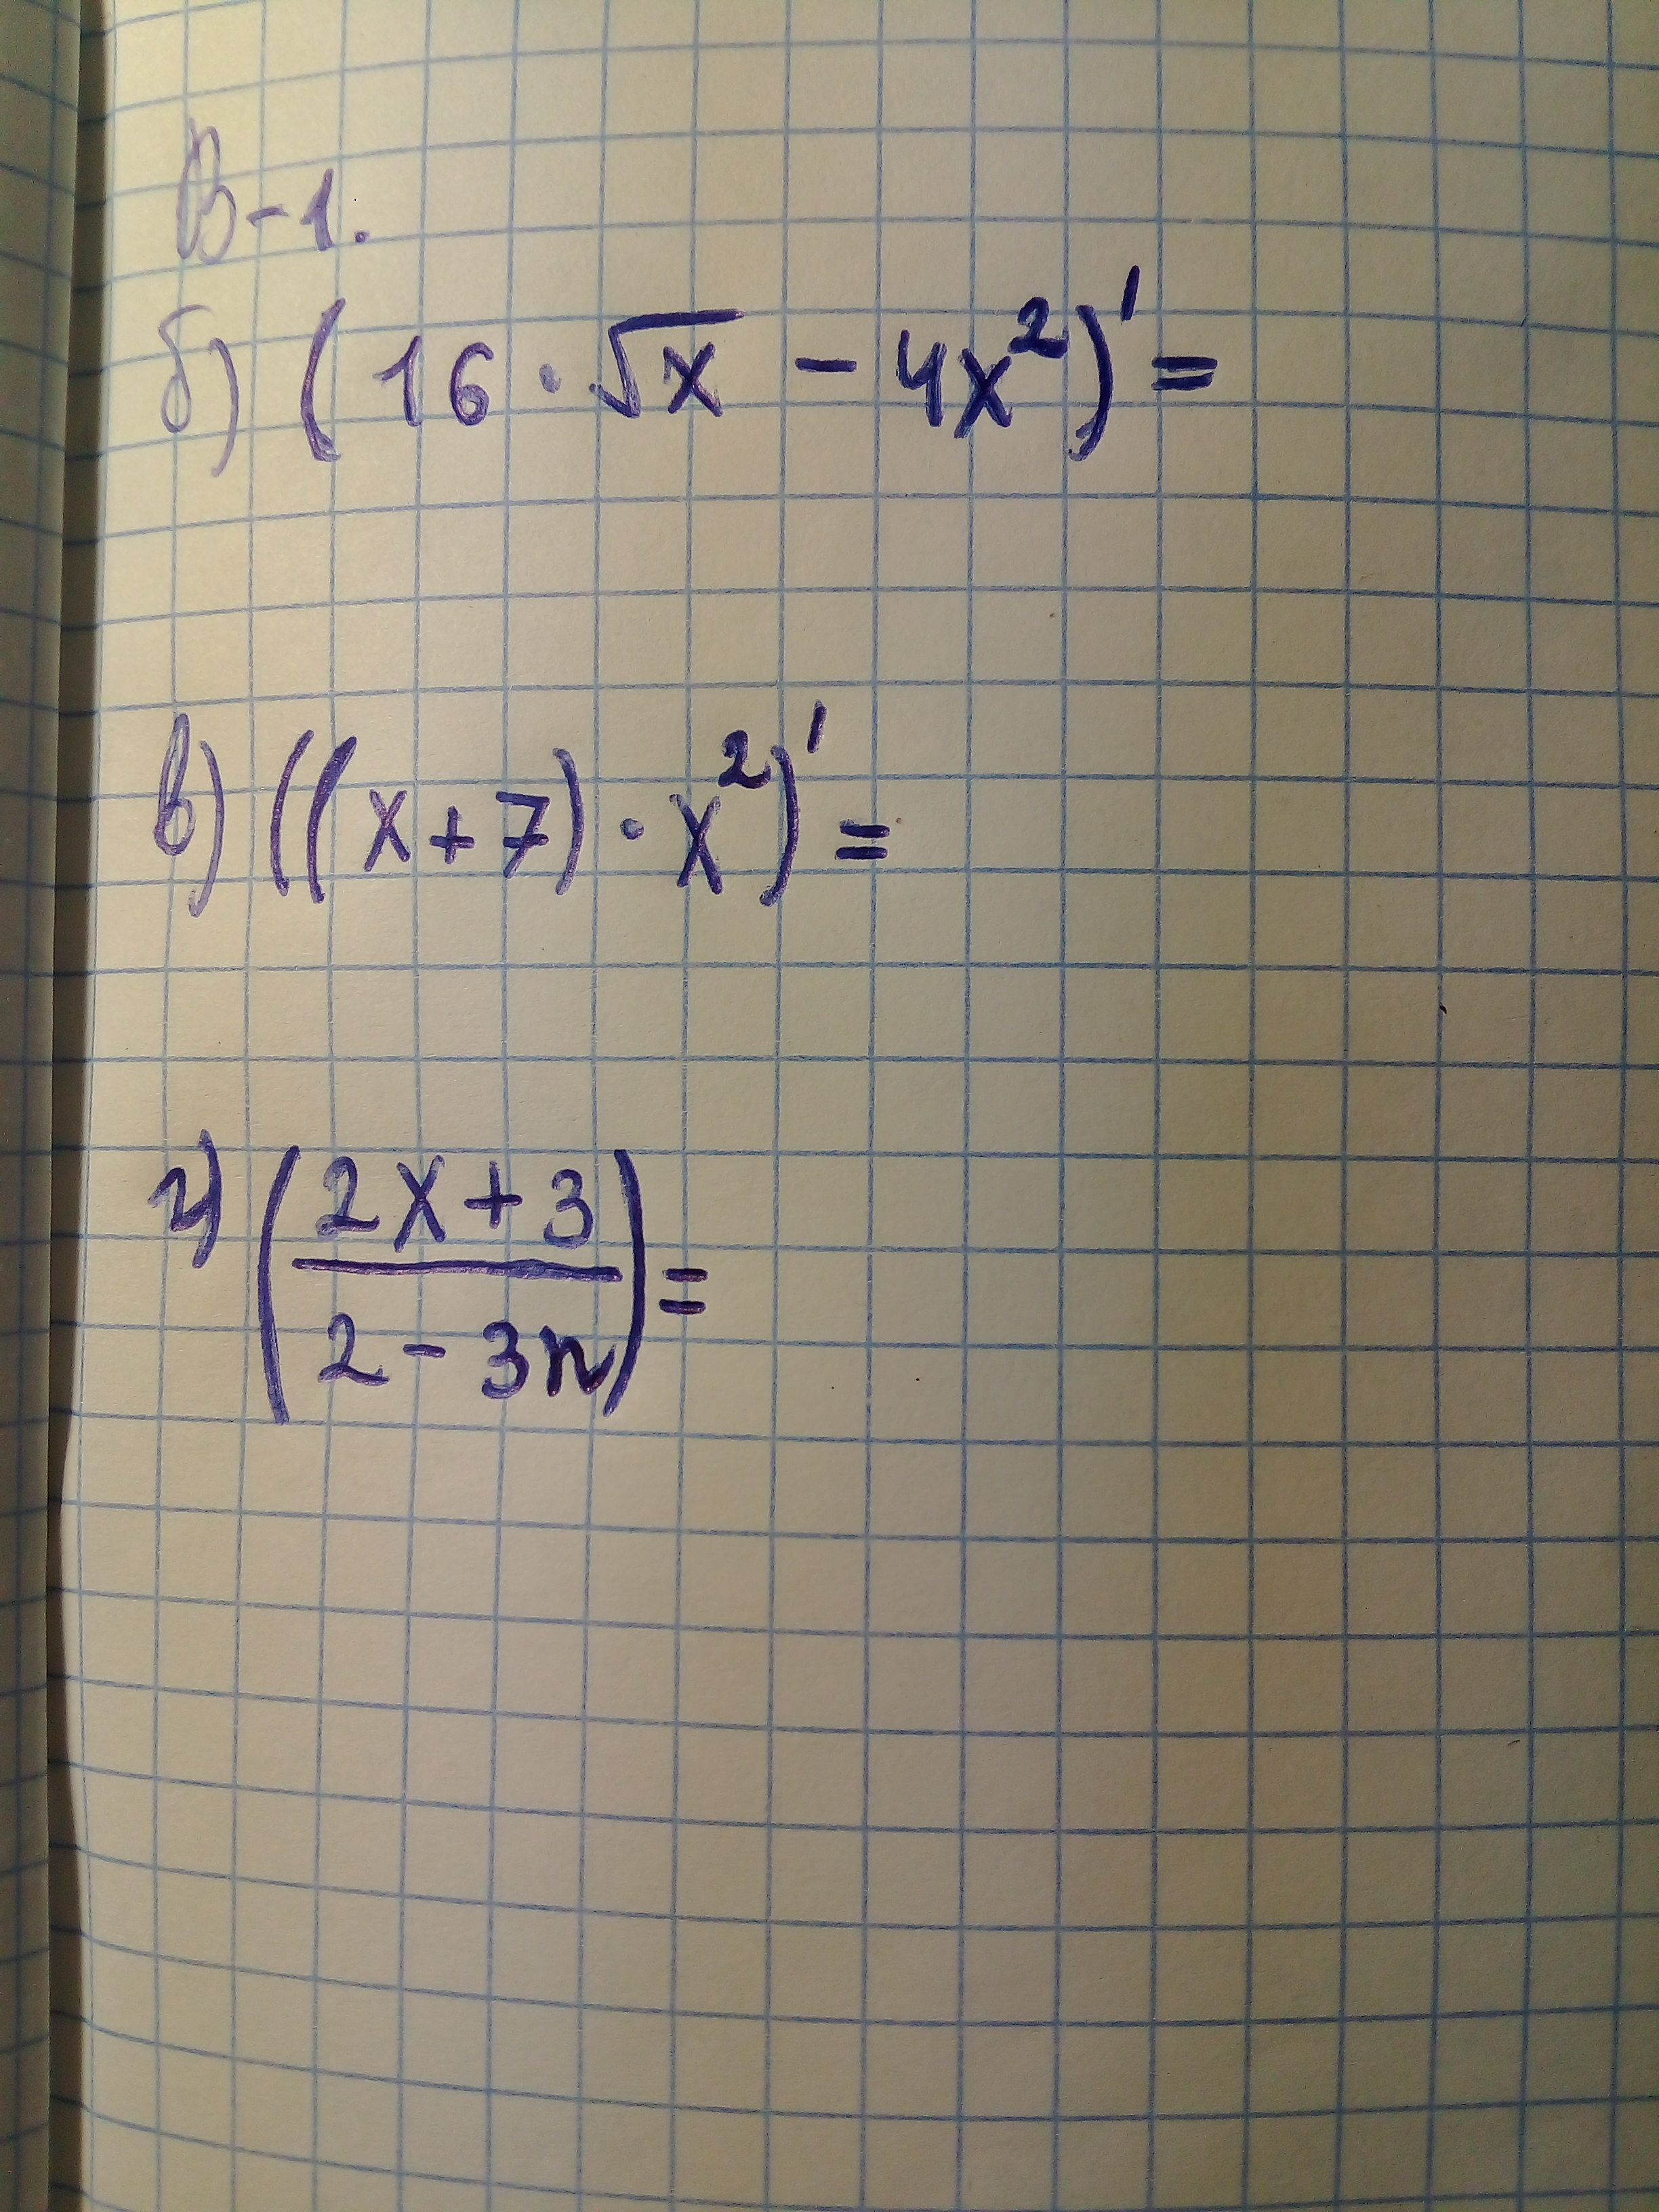 В-1.
б) (16·√x - 4x²)' =
в) ((x+7)·x²)' =
г) (2x+3
2-3n) =